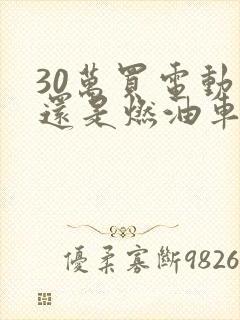 30萬買電動
還是燃油車
優柔寡斷9826